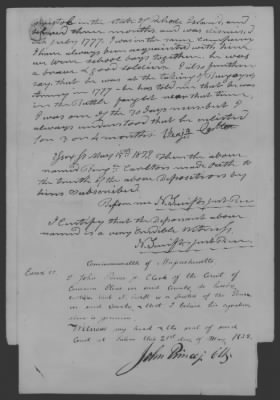 Bristol in the State of Rhode Island, and
served three months, and was dismissed
in July 1777. I was in the same Company
I have always been acquainted with him
we were school boys together: he was
a brave & good soldier. I also further
say, that he was at the taking of Burgoyne's
Army in 1777 - he has told me that he was
in the Battle fought near that time,
I was one of the 30 days men but I
always understood that he enlisted
for 3 or 4 months
Essex ss May 15th 1832. Then the above
named Benjn Carlton made oath to
the truth of the above deposition by
him subscribed.
Before me N. Swift Just. Peace
I Certify that the deponent above
named is a very Credible Witness.
N. Swift Just. Peace
Commonwealth of Massachusetts
Essex ss.
I John Prince Jr Clerk of the Court of
Common Pleas in said County do hereby
certify that N. Swift is a Justice of the Peace
in said County & that I believe his signature
above is genuine
Witness my hand & the seal of said
Court at Salem this 21st day of May 1832.
John Prince Jr Clk.